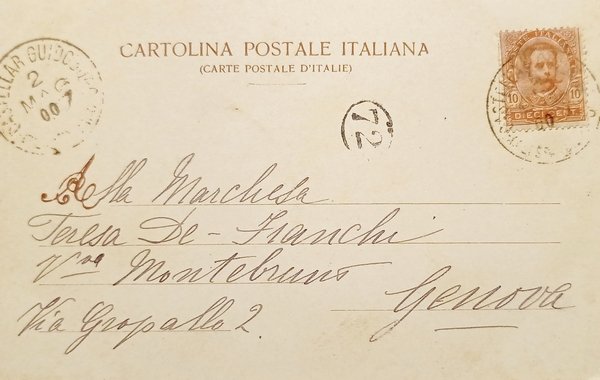 CARTOLINA POSTALE ITALIANA
(CARTE POSTALE D'ITALIE)
CASTELLAR GUIDO
2
00
72
10 10
DIECI CENT
Alla Marchesa
Teresa De-Franchi
Vva Montebruno
Via Gropallo 2.
Genova